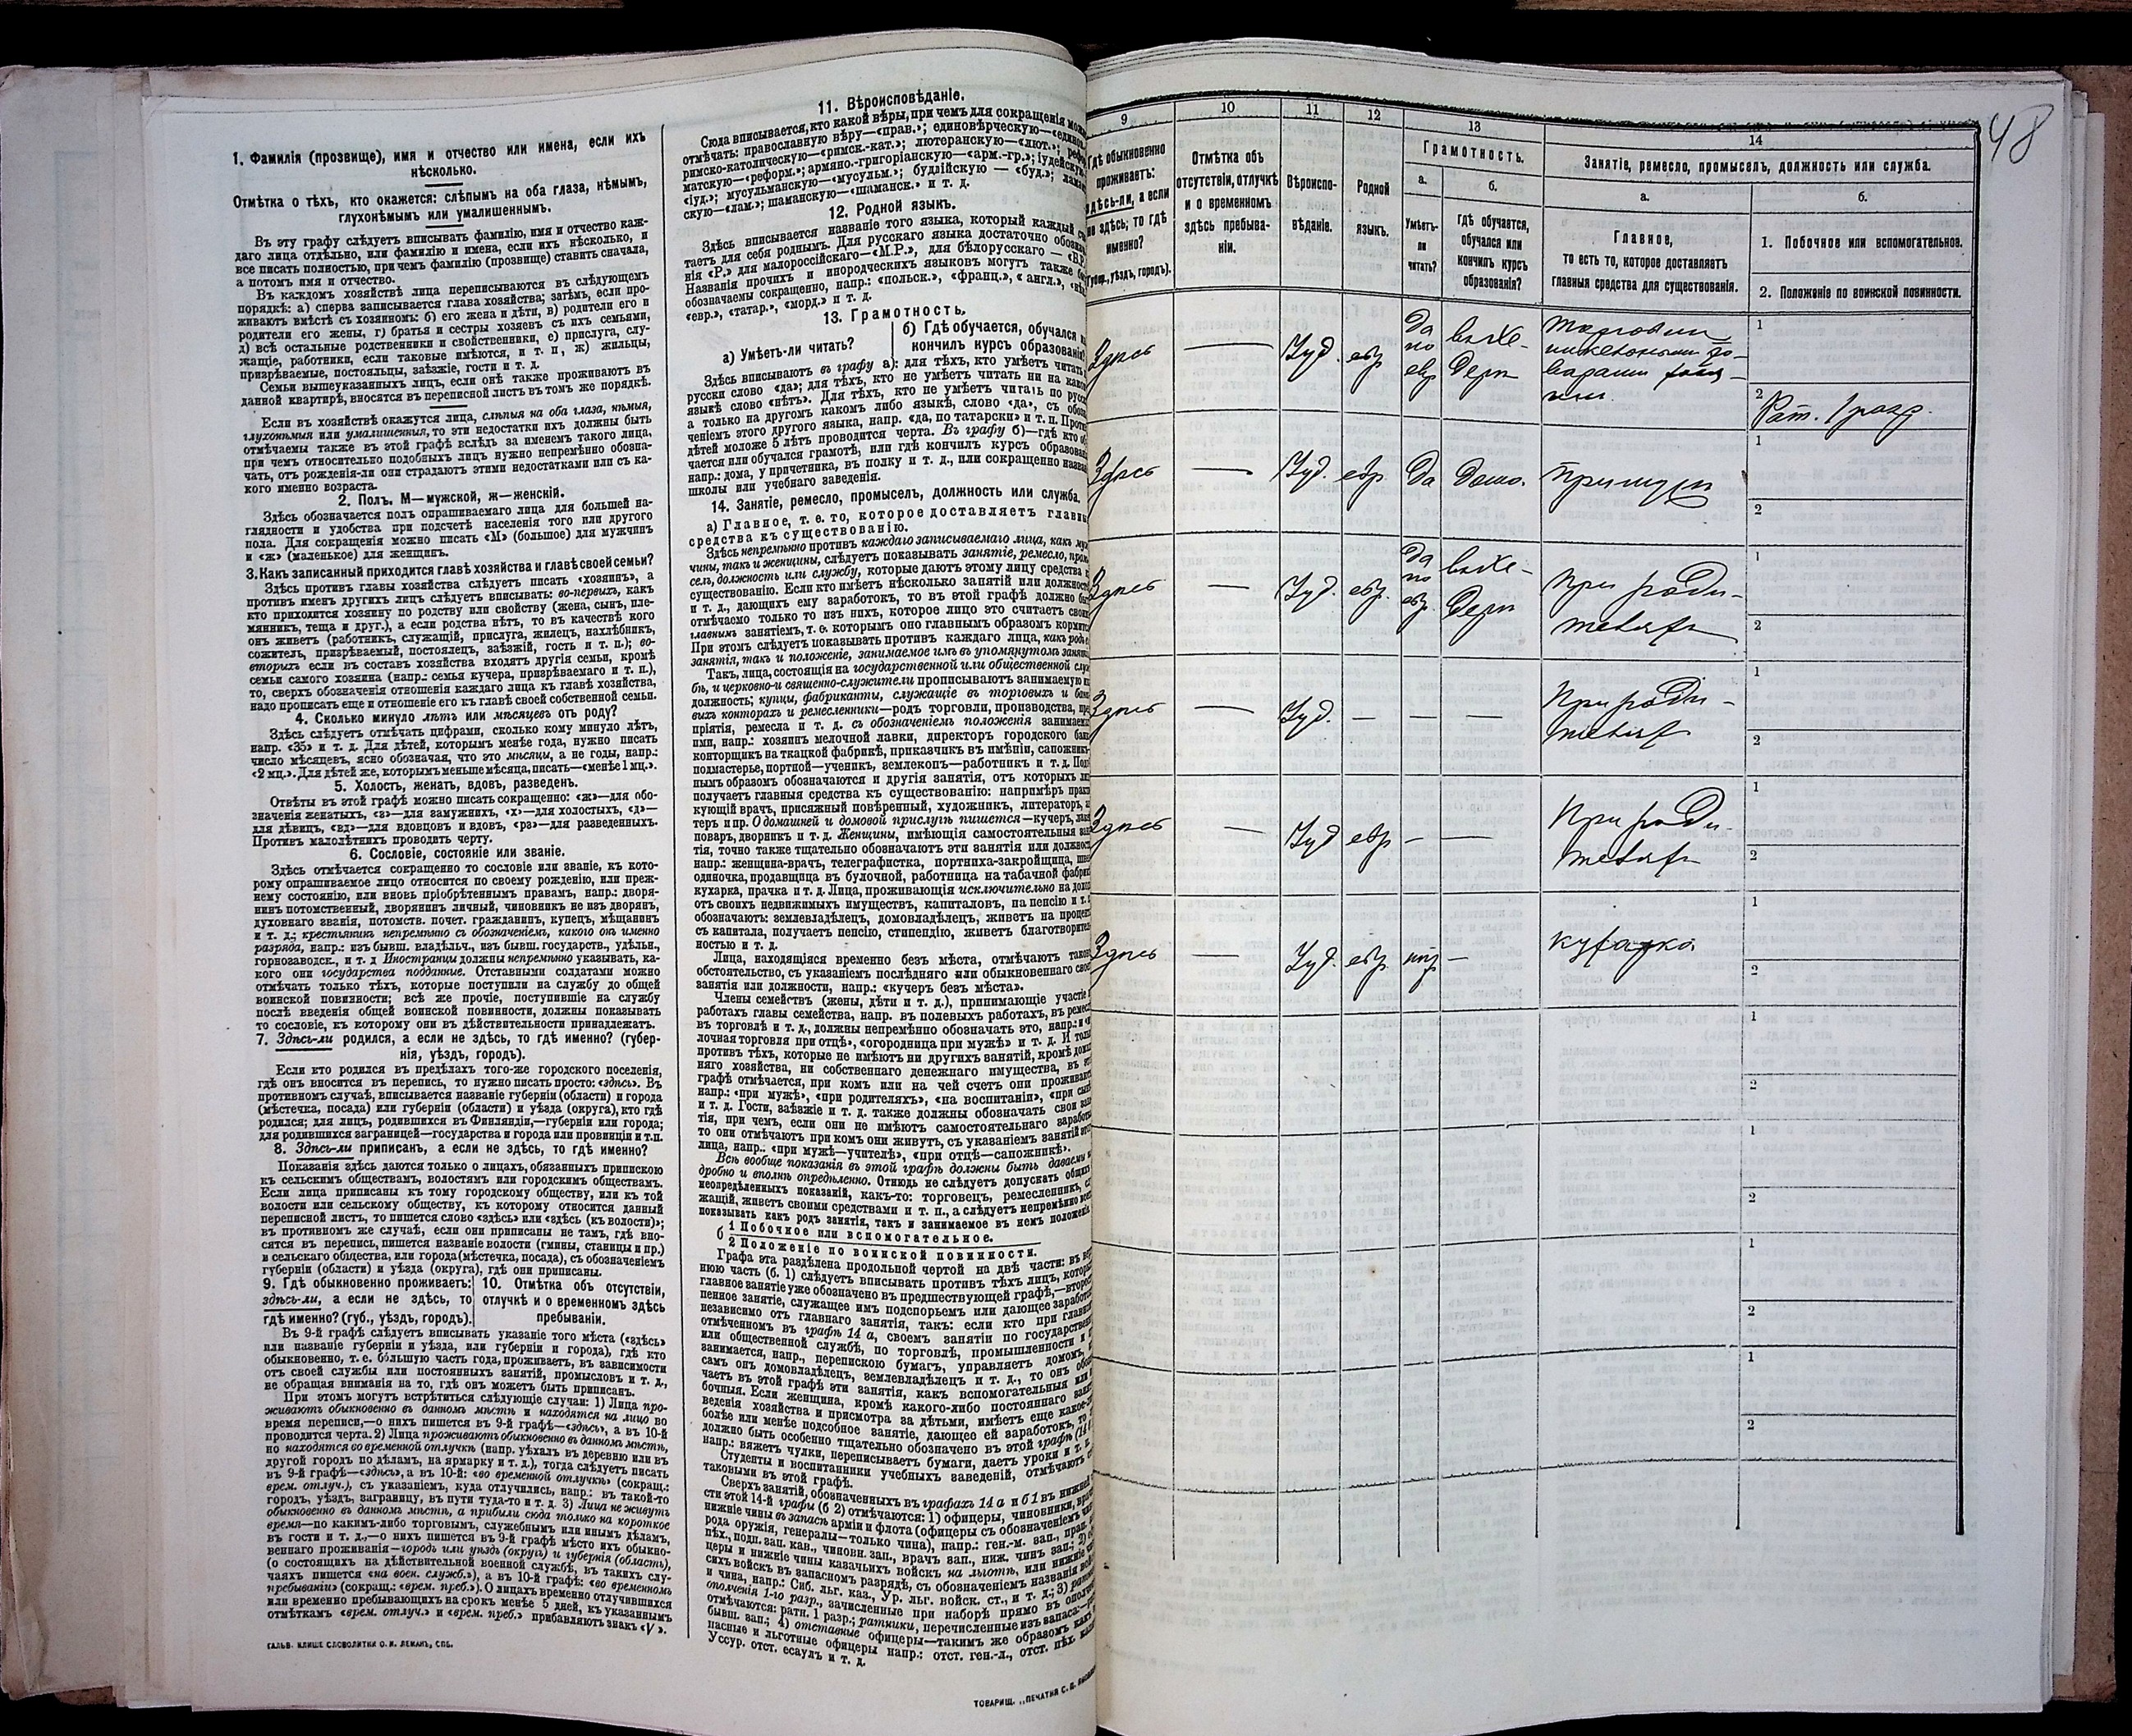 1. Фамилія (прозвище), имя и отчество или имена, если ихъ
нѣсколько.
Отмѣтка о тѣхъ, кто окажется: слѣпымъ на оба глаза, нѣмымъ,
глухонѣмымъ или умалишеннымъ.
Въ эту графу слѣдуетъ вписывать фамилію, имя и отчество каж-
даго лица отдѣльно, или фамилію и имена, если ихъ нѣсколько, и
все писать полностью, при чемъ фамилію (прозвище) ставить сначала,
а потомъ имя и отчество.
Въ каждомъ хозяйствѣ лица переписываются въ слѣдующемъ
порядкѣ: а) сперва записывается глава хозяйства; затѣмъ, если про-
живаютъ вмѣстѣ съ хозяиномъ: б) его жена и дѣти, в) родители его и
родители его жены, г) братья и сестры хозяевъ съ ихъ семьями,
д) всѣ остальные родственники и свойственники, е) прислуга, слу-
жащіе, работники, если таковые имѣются, и т. п, ж) жильцы,
призрѣваемые, постояльцы, заѣзжіе, гости и т. д.
Семьи вышеуказанныхъ лицъ, если онѣ также проживаютъ въ
данной квартирѣ, вносятся въ переписной листъ въ томъ же порядкѣ.
Если въ хозяйствѣ окажутся лица, слѣпыя на оба глаза, нѣмыя,
глухонѣмыя или умалишенныя, то эти недостатки ихъ должны быть
отмѣчаемы также въ этой графѣ вслѣдъ за именемъ такого лица,
при чемъ относительно подобныхъ лицъ нужно непремѣнно обозна-
чать, отъ рожденія-ли они страдаютъ этими недостатками или съ ка-
кого именно возраста.
2. Полъ. М—мужской, ж—женскій.
Здѣсь обозначается полъ опрашиваемаго лица для большей на-
глядности и удобства при подсчетѣ населенія того или другого
пола. Для сокращенія можно писать «М» (большое) для мужчинъ
и «ж» (маленькое) для женщинъ.
3. Какъ записанный приходится главѣ хозяйства и главѣ своей семьи?
Здѣсь противъ главы хозяйства слѣдуетъ писать «хозяинъ», а
противъ именъ другихъ лицъ слѣдуетъ вписывать: во-первыхъ, какъ
кто приходится хозяину по родству или свойству (жена, сынъ, пле-
мянникъ, теща и друг.), а если родства нѣтъ, то въ качествѣ кого
онъ живетъ (работникъ, служащій, прислуга, жилецъ, нахлѣбникъ,
сожитель, призрѣваемый, постоялецъ, заѣзжій, гость и т. п.); во-
вторыхъ если въ составъ хозяйства входятъ другія семьи, кромѣ
семьи самого хозяина (напр.: семья кучера, призрѣваемаго и т. п.),
то, сверхъ обозначенія отношенія каждаго лица къ главѣ хозяйства,
надо прописать еще и отношеніе его къ главѣ своей собственной семьи.
4. Сколько минуло лѣтъ или мѣсяцевъ отъ роду?
Здѣсь слѣдуетъ отмѣчать цифрами, сколько кому минуло лѣтъ,
напр. «35» и т. д. Для дѣтей, которымъ менѣе года, нужно писать
число мѣсяцевъ, ясно обозначая, что это мѣсяцы, а не годы, напр.:
«2 мц.». Для дѣтей же, которымъ меньше мѣсяца, писать—«менѣе 1 мц.».
5. Холостъ, женатъ, вдовъ, разведенъ.
Отвѣты въ этой графѣ можно писать сокращенно: «ж»—для обо-
значенія женатыхъ, «з»—для замужнихъ, «х»—для холостыхъ, «д»—
для дѣвицъ, «вд»—для вдовцовъ и вдовъ, «рз»—для разведенныхъ.
Противъ малолѣтнихъ проводить черту.
6. Сословіе, состояніе или званіе.
Здѣсь отмѣчается сокращенно то сословіе или званіе, къ кото-
рому опрашиваемое лицо относится по своему рожденію, или преж-
нему состоянію, или вновь пріобрѣтеннымъ правамъ, напр.: дворя-
нинъ потомственный, дворянинъ личный, чиновникъ не изъ дворянъ,
духовнаго званія, потомств. почет. гражданинъ, купецъ, мѣщанинъ
и т. д.; крестьянинъ непремѣнно съ обозначеніемъ, какого онъ именно
разряда, напр.: изъ бывш. владѣльч., изъ бывш. государств., удѣльн.,
горнозаводск., и т. д Иностранцы должны непремѣнно указывать, ка-
кого они государства подданные. Отставными солдатами можно
отмѣчать только тѣхъ, которые поступили на службу до общей
воинской повинности; всѣ же прочіе, поступившіе на службу
послѣ введенія общей воинской повинности, должны показывать
то сословіе, къ которому они въ дѣйствительности принадлежатъ.
7. Здѣсь-ли родился, а если не здѣсь, то гдѣ именно? (губер-
нія, уѣздъ, городъ).
Если кто родился въ предѣлахъ того-же городского поселенія,
гдѣ онъ вносится въ перепись, то нужно писать просто: «здѣсь». Въ
противномъ случаѣ, вписывается названіе губерніи (области) и города
(мѣстечка, посада) или губерніи (области) и уѣзда (округа), кто гдѣ
родился; для лицъ, родившихся въ Финляндіи,—губерніи или города;
для родившихся заграницей—государства и города или провинціи и т.п.
8. Здѣсь-ли приписанъ, а если не здѣсь, то гдѣ именно?
Показанія здѣсь даются только о лицахъ, обязанныхъ припискою
къ сельскимъ обществамъ, волостямъ или городскимъ обществамъ.
Если лица приписаны къ тому городскому обществу, или къ той
волости или сельскому обществу, къ которому относится данный
переписной листъ, то пишется слово «здѣсь» или «здѣсь (къ волости)»;
въ противномъ же случаѣ, если они приписаны не тамъ, гдѣ вно-
сятся въ перепись, пишется названіе волости (гмины, станицы и пр.)
и сельскаго общества, или города (мѣстечка, посада), съ обозначеніемъ
губерніи (области) и уѣзда (округа), гдѣ они приписаны.
9. Гдѣ обыкновенно проживаетъ: здѣсь-ли, а если не здѣсь, то гдѣ именно? (губ., уѣздъ, городъ).
10. Отмѣтка объ отсутствіи, отлучкѣ и о временномъ здѣсь пребываніи.
Въ 9-й графѣ слѣдуетъ вписывать указаніе того мѣста («здѣсь»
или названіе губерніи и уѣзда, или губерніи и города), гдѣ кто
обыкновенно, т. е. большую часть года, проживаетъ, въ зависимости
отъ своей службы или постоянныхъ занятій, промысловъ и т. д.,
не обращая вниманія на то, гдѣ онъ можетъ быть приписанъ.
При этомъ могутъ встрѣтиться слѣдующіе случаи: 1) Лица про-
живаютъ обыкновенно въ данномъ мѣстѣ и находятся на лицо во
время переписи,—о нихъ пишется въ 9-й графѣ—«здѣсь», а въ 10-й
проводится черта. 2) Лица проживаютъ обыкновенно въ данномъ мѣстѣ,
но находятся во временной отлучкѣ (напр. уѣхалъ въ деревню или въ
другой городъ по дѣламъ, на ярмарку и т. д.), тогда слѣдуетъ писать
въ 9-й графѣ—«здѣсь», а въ 10-й: «во временной отлучкѣ» (сокращ.:
врем. отлуч.), съ указаніемъ, куда отлучились, напр.: въ такой-то
городъ, уѣздъ, заграницу, въ пути туда-то и т. д. 3) Лица не живутъ
обыкновенно въ данномъ мѣстѣ, а прибыли сюда только на короткое
время—по какимъ-либо торговымъ, служебнымъ или инымъ дѣламъ,
въ гости и т. д.,—о нихъ пишется въ 9-й графѣ мѣсто ихъ обыкно-
веннаго проживанія—городъ или уѣздъ (округъ) и губернія (область),
(о состоящихъ на дѣйствительной военной службѣ, въ такихъ слу-
чаяхъ пишется «на воен. служб.»), а въ 10-й графѣ: «во временномъ
пребываніи» (сокращ.: «врем. преб.»). О лицахъ временно отлучившихся
или временно пребывающихъ на срокъ менѣе 5 дней, къ указаннымъ
отмѣткамъ «врем. отлуч.» и «врем. преб.» прибавляютъ знакъ «V».
ГАЛЬВ. КЛИШЕ СЛОВОЛИТНИ О. И. ЛЕМАНЪ, СПБ.
11. Вѣроисповѣданіе.
Сюда вписывается, кто какой вѣры, при чемъ для сокращенія
отмѣчать: православную вѣру—«прав.»; единовѣрческую—
римско-католическую—«римск.-кат.»; лютеранскую—«лют.»;
матскую—«реформ.»; армяно.-григоріанскую—«арм.-гр.»;
«іуд.»; мусульманскую—«мусульм.»; буддійскую — «буд.»;
скую—«лам.»; шаманскую—«шаманск.» и т. д.
12. Родной языкъ.
Здѣсь вписывается названіе того языка, который каждый
таетъ для себя роднымъ. Для русскаго языка достаточно
нія «Р.» для малороссійскаго—«М.Р.», для бѣлорусскаго —
Названія прочихъ и инородческихъ языковъ могутъ также
обозначаемы сокращенно, напр.: «польск.», «франц.», «англ.»,
«евр.», «татар.», «морд.» и т. д.
13. Грамотность.
а) Умѣетъ-ли читать?
б) Гдѣ обучается, обучался
кончилъ курсъ образованія?
Здѣсь вписываютъ въ графу а): для тѣхъ, кто умѣетъ читать
русски слово «да»; для тѣхъ, кто не умѣетъ читать ни на
языкѣ слово «нѣтъ». Для тѣхъ, кто не умѣетъ читать по
а только на другомъ какомъ либо языкѣ, слово «да», съ
ченіемъ этого другого языка, напр. «да, по татарски» и т. п.
дѣтей моложе 5 лѣтъ проводится черта. Въ графу б)—гдѣ кто
чается или обучался грамотѣ, или гдѣ кончилъ курсъ
напр.: дома, у причетника, въ полку и т. д., или сокращенно
школы или учебнаго заведенія.
14. Занятіе, ремесло, промыселъ, должность или служба.
а) Главное, т. е. то, которое доставляетъ
средства къ существованію.
Здѣсь непремѣнно противъ каждаго записываемаго лица, какъ
чины, такъ и женщины, слѣдуетъ показывать занятіе, ремесло,
селъ, должность или службу, которые даютъ этому лицу средства
существованію. Если кто имѣетъ нѣсколько занятій или
и т. д., дающихъ ему заработокъ, то въ этой графѣ должно
отмѣчаемо только то изъ нихъ, которое лицо это считаетъ
главнымъ занятіемъ, т. е. которымъ оно главнымъ образомъ
При этомъ слѣдуетъ показывать противъ каждаго лица,
занятія, такъ и положеніе, занимаемое имъ въ упомянутомъ
Такъ, лица, состоящія на государственной или общественной
бѣ, и церковно-и священно-служители прописываютъ занимаемую
должность; купцы, фабриканты, служащіе въ торговыхъ и
выхъ конторахъ и ремесленники—родъ торговли, производства,
пріятія, ремесла и т. д. съ обозначеніемъ положенія
ими, напр.: хозяинъ мелочной лавки, директоръ городского
конторщикъ на ткацкой фабрикѣ, приказчикъ въ имѣніи,
подмастерье, портной—ученикъ, землекопъ—работникъ и т. д.
нымъ образомъ обозначаются и другія занятія, отъ которыхъ
получаетъ главныя средства къ существованію: напримѣръ
кующій врачъ, присяжный повѣренный, художникъ, литераторъ,
теръ и пр. О домашней и домовой прислугѣ пишется—кучеръ,
поваръ, дворникъ и т. д. Женщины, имѣющія самостоятельныя
тія, точно также тщательно обозначаютъ эти занятія или
напр.: женщина-врачъ, телеграфистка, портниха-закройщица,
одиночка, продавщица въ булочной, работница на табачной
кухарка, прачка и т. д. Лица, проживающія исключительно на
отъ своихъ недвижимыхъ имуществъ, капиталовъ, на пенсію и т.
обозначаютъ: землевладѣлецъ, домовладѣлецъ, живетъ на
съ капитала, получаетъ пенсію, стипендію, живетъ
ностью и т. д.
Лица, находящіяся временно безъ мѣста, отмѣчаютъ
обстоятельство, съ указаніемъ послѣдняго или обыкновеннаго
занятія или должности, напр.: «кучеръ безъ мѣста».
Члены семействъ (жены, дѣти и т. д.), принимающіе участіе
работахъ главы семейства, напр. въ полевыхъ работахъ, въ
въ торговлѣ и т. д., должны непремѣнно обозначать это,
лочная торговля при отцѣ», «огородница при мужѣ» и т. д. И
противъ тѣхъ, которые не имѣютъ ни другихъ занятій, кромѣ
няго хозяйства, ни собственнаго денежнаго имущества, въ
графѣ отмѣчается, при комъ или на чей счетъ они
напр.: «при мужѣ», «при родителяхъ», «на воспитаніи»,
и т. д. Гости, заѣзжіе и т. д. также должны обозначать свои
тія, при чемъ, если они не имѣютъ самостоятельнаго
то они отмѣчаютъ при комъ они живутъ, съ указаніемъ занятій
лица, напр.: «при мужѣ—учителѣ», «при отцѣ—сапожникѣ».
Всѣ вообще показанія въ этой графѣ должны быть даваемы
дробно и вполнѣ опредѣленно. Отнюдь не слѣдуетъ допускать
неопредѣленныхъ показаній, какъ-то: торговецъ, ремесленникъ,
жащій, живетъ своими средствами и т. п., а слѣдуетъ непремѣнно
показывать какъ родъ занятія, такъ и занимаемое въ немъ
б 1 Побочное или вспомогательное.
2 Положеніе по воинской повинности.
Графа эта раздѣлена продольной чертой на двѣ части:
нюю часть (б. 1) слѣдуетъ вписывать противъ тѣхъ лицъ,
главное занятіе уже обозначено въ предшествующей графѣ,—
пенное занятіе, служащее имъ подспорьемъ или дающее
независимо отъ главнаго занятія, такъ: если кто при
отмѣченномъ въ графѣ 14 а, своемъ занятіи по
или общественной службѣ, по торговлѣ, промышленности
занимается, напр., перепискою бумагъ, управляетъ домомъ,
самъ онъ домовладѣлецъ, землевладѣлецъ и т. д., то онъ
чаетъ въ этой графѣ эти занятія, какъ вспомогательныя или
бочныя. Если женщина, кромѣ какого-либо постояннаго
веденія хозяйства и присмотра за дѣтьми, имѣетъ еще
болѣе или менѣе подсобное занятіе, дающее ей заработокъ,
должно быть особенно тщательно обозначено въ этой графѣ
напр.: вяжетъ чулки, переписываетъ бумаги, даетъ уроки и т.
Студенты и воспитанники учебныхъ заведеній, отмѣчаютъ
таковыми въ этой графѣ.
Сверхъ занятій, обозначенныхъ въ графахъ 14 а и б 1 въ
сти этой 14-й графы (б 2) отмѣчаются: 1) офицеры, чиновники,
нижніе чины въ запасѣ арміи и флота (офицеры съ обозначеніемъ
рода оружія, генералы—только чина), напр.: ген.-м. зап.,
пѣх., подп. зап. кав., чиновн. зап., врачъ зап., ниж. чинъ зап.;
церы и нижніе чины казачьихъ войскъ на льготѣ, или
сихъ войскъ въ запасномъ разрядѣ, съ обозначеніемъ названія
и чина, напр.: Сиб. льг. каз., Ур. льг. войск. ст., и т. д.; 3)
ополченія 1-го разр., зачисленные при наборѣ прямо въ
отмѣчаются: ратн. 1 разр.; ратники, перечисленные изъ запаса:
бывш. зап.; 4) отставные офицеры—такимъ же образомъ
пасные и льготные офицеры напр.: отст. ген.-л., отст. пѣх.
Уссур. отст. есаулъ и т. д.
ТОВАРИЩ. „ПЕЧАТНЯ С. П.
48
9 10 11 12 13 14
Гдѣ обыкновенно
проживаетъ:
здѣсь-ли, а если
не здѣсь, то гдѣ
именно?
(губер., уѣздъ, городъ).
Отмѣтка объ
отсутствіи, отлучкѣ
и о временномъ
здѣсь пребыва-
ніи.
Вѣроиспо-
вѣданіе.
Родной
языкъ.
Грамотность.
а.
Умѣетъ-
ли
читать?
б.
Гдѣ обучается,
обучался или
кончилъ курсъ
образованія?
Занятіе, ремесло, промыселъ, должность или служба.
а.
Главное,
то есть то, которое доставляетъ
главныя средства для существованія.
б.
1. Побочное или вспомогательное.
2. Положеніе по воинской повинности.
Здѣсь — Іуд. евр Да по евр въ хе-
дерѣ
1
2 Рат. 1 разр.
Здѣсь — Іуд. евр. Да Дома. При мужѣ
1
2
Здѣсь — Іуд. евр. Да по евр. въ хе-
дерѣ При роди-
теляхъ
1
2
Здѣсь — Іуд. — — — При роди-
теляхъ
1
2
Здѣсь — Іуд евр — — При роди-
теляхъ
1
2
Здѣсь — Іуд. евр. — кухарка
1
2
1
2
1
2
1
2
1
2